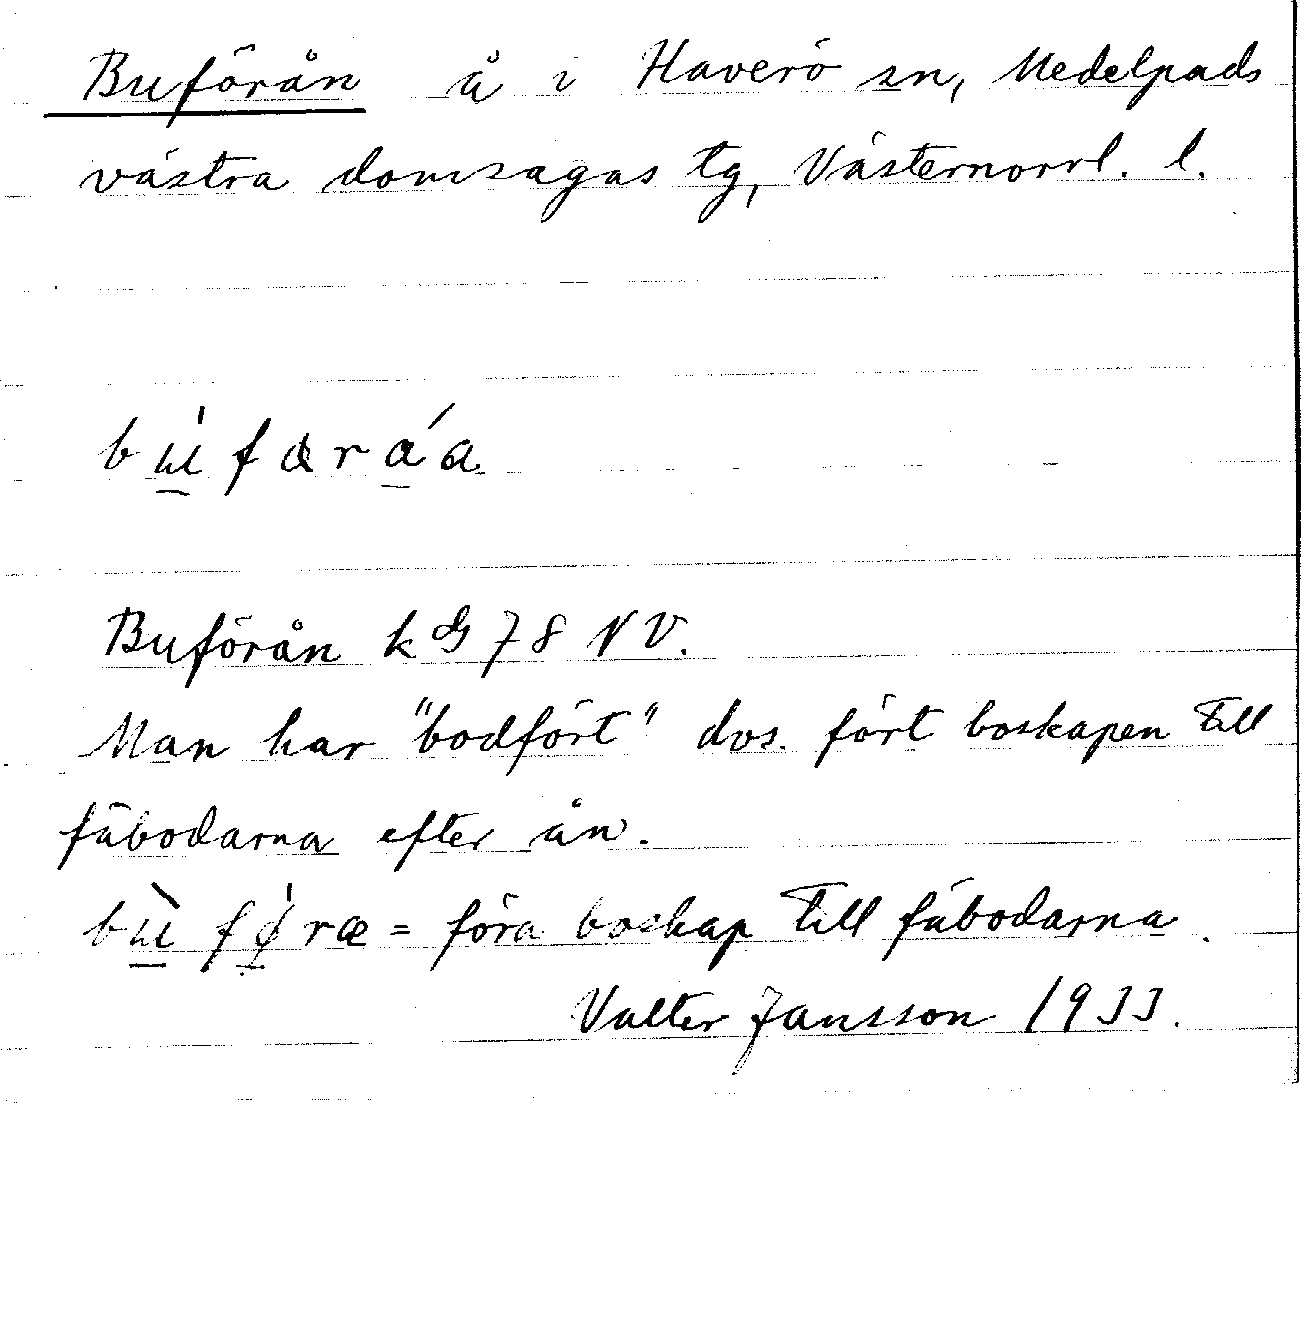 Buförån å i Haverö sn, Medelpads
västra domsagas tg, Västernorrl. l.
bu̱̍færá̱a
Buförån kG 78 NV.
Man har "bodfört" dvs. fört boskapen till
fäbodarna efter ån.
bù̱fø̱̍ræ = föra boskap till fäbodarna.
Valter Jansson 1933.